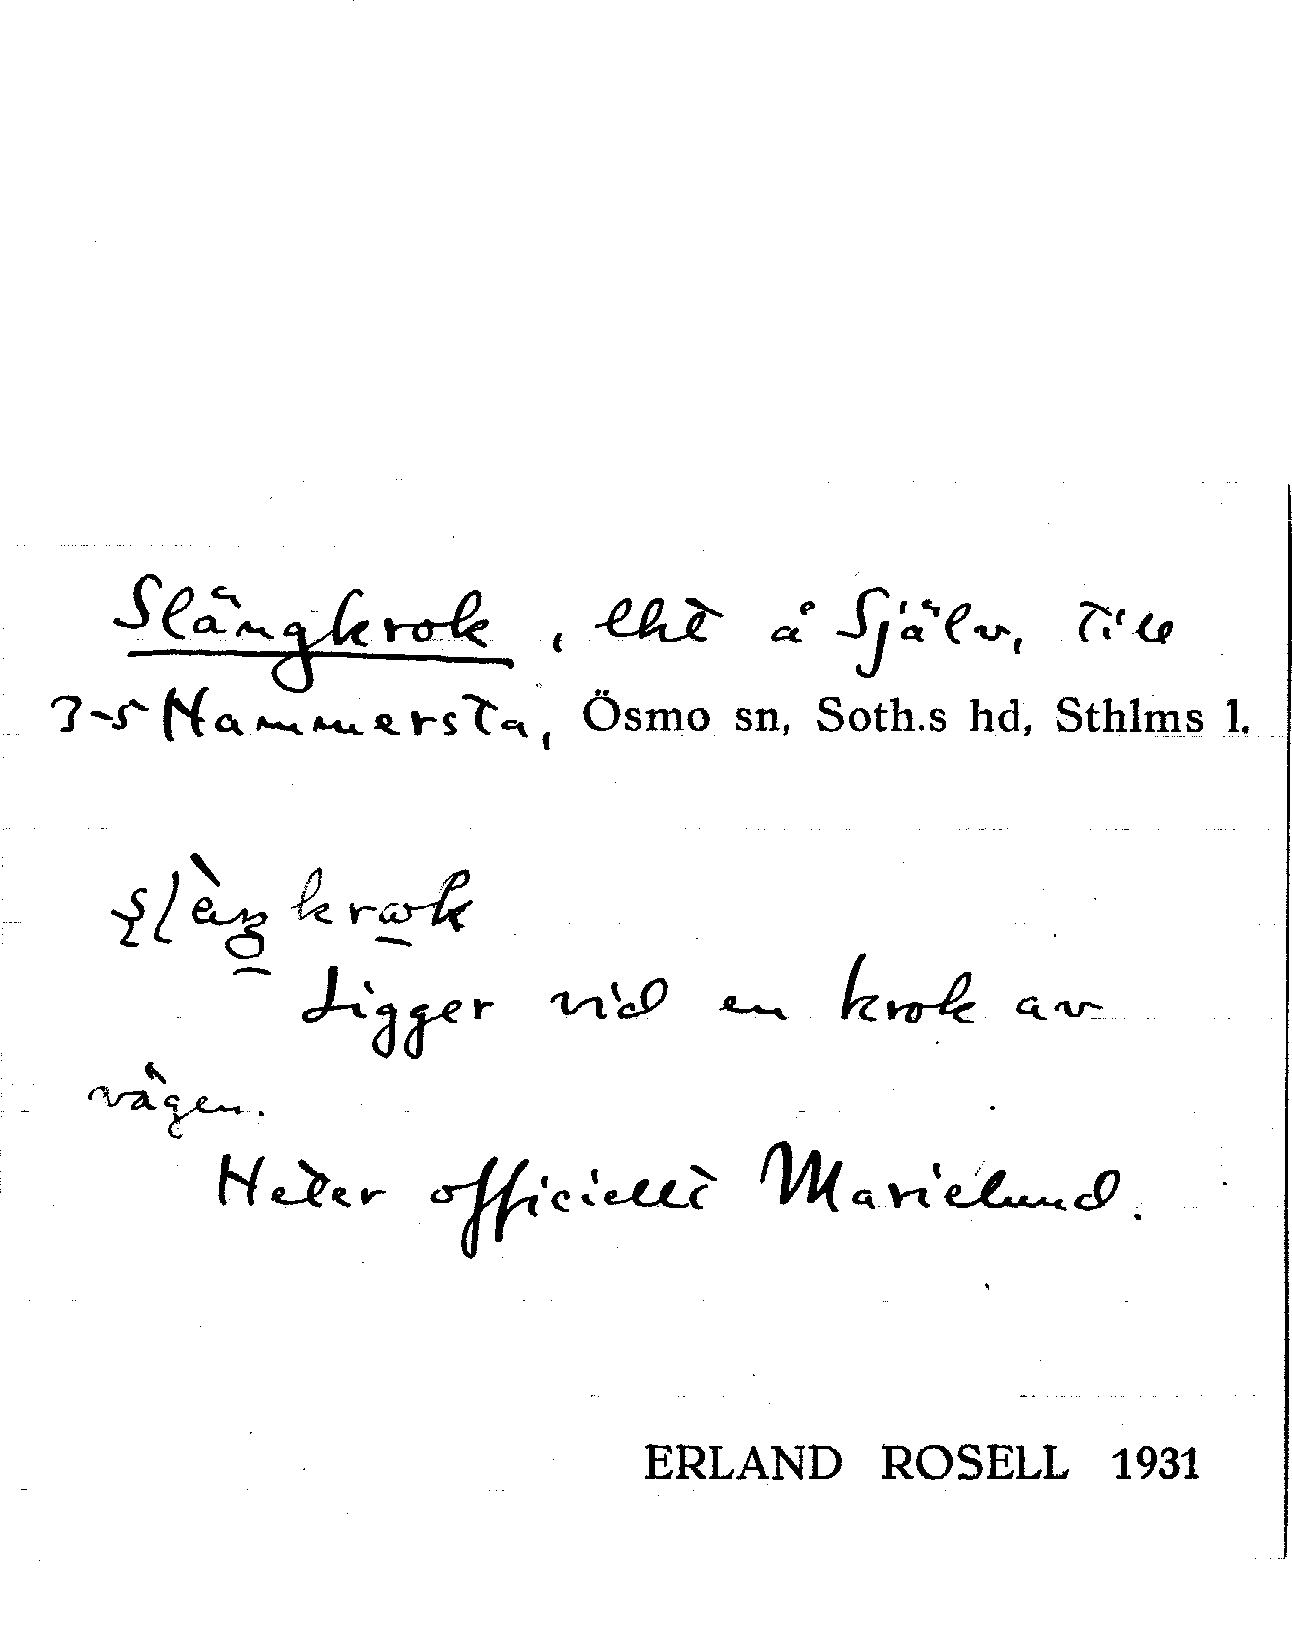 Slängkrok, lht å Själv, till
3-5 Hammersta, Ösmo sn, Soth.s hd, Sthlms l.
Ligger vid en krok av
vägen.
Heter officiellt Marielund.
ERLAND ROSELL 1931